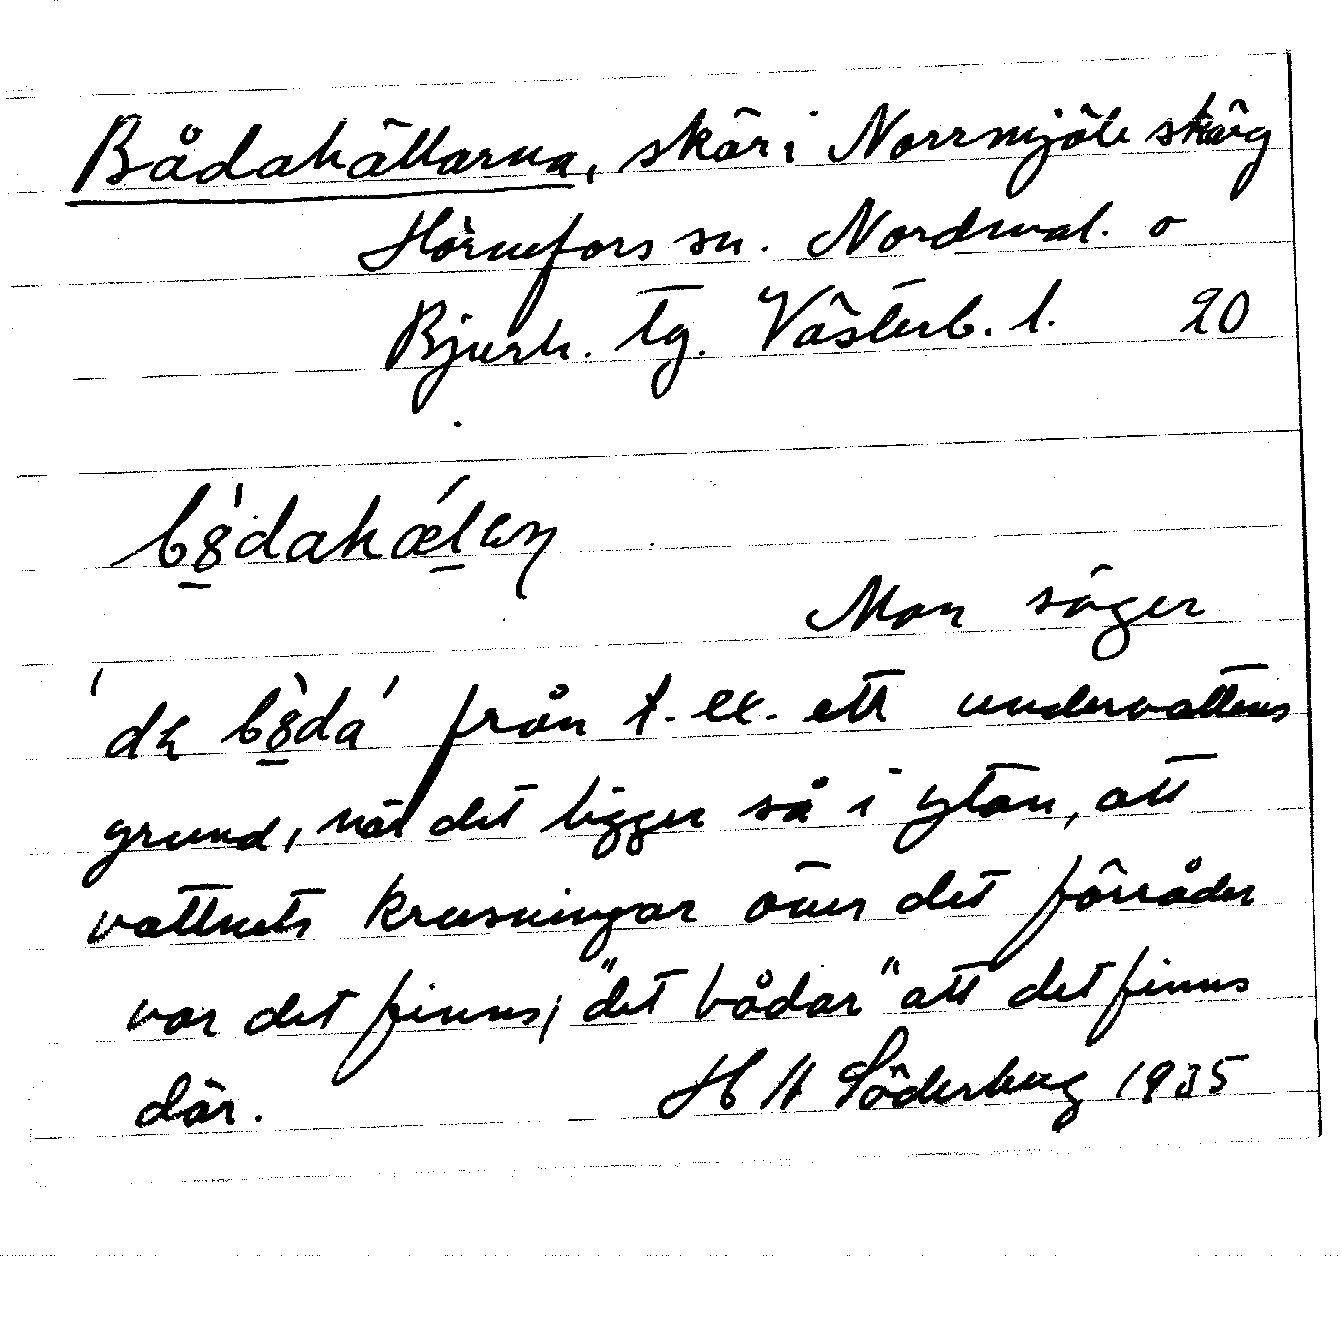 Bådahällarna, skär i Norrmjöle skärg
Hörnefors sn. Nordmal. o
Bjurh. tg. Västerb. l. 20
Man säger
'da bȣ̀da' från t. ex. ett undervattens
grund, när det ligger så i ytan, att
vattnets krusningar över det förråder
var det finns; "det bådar" att det finns
där. H H Söderberg 1935